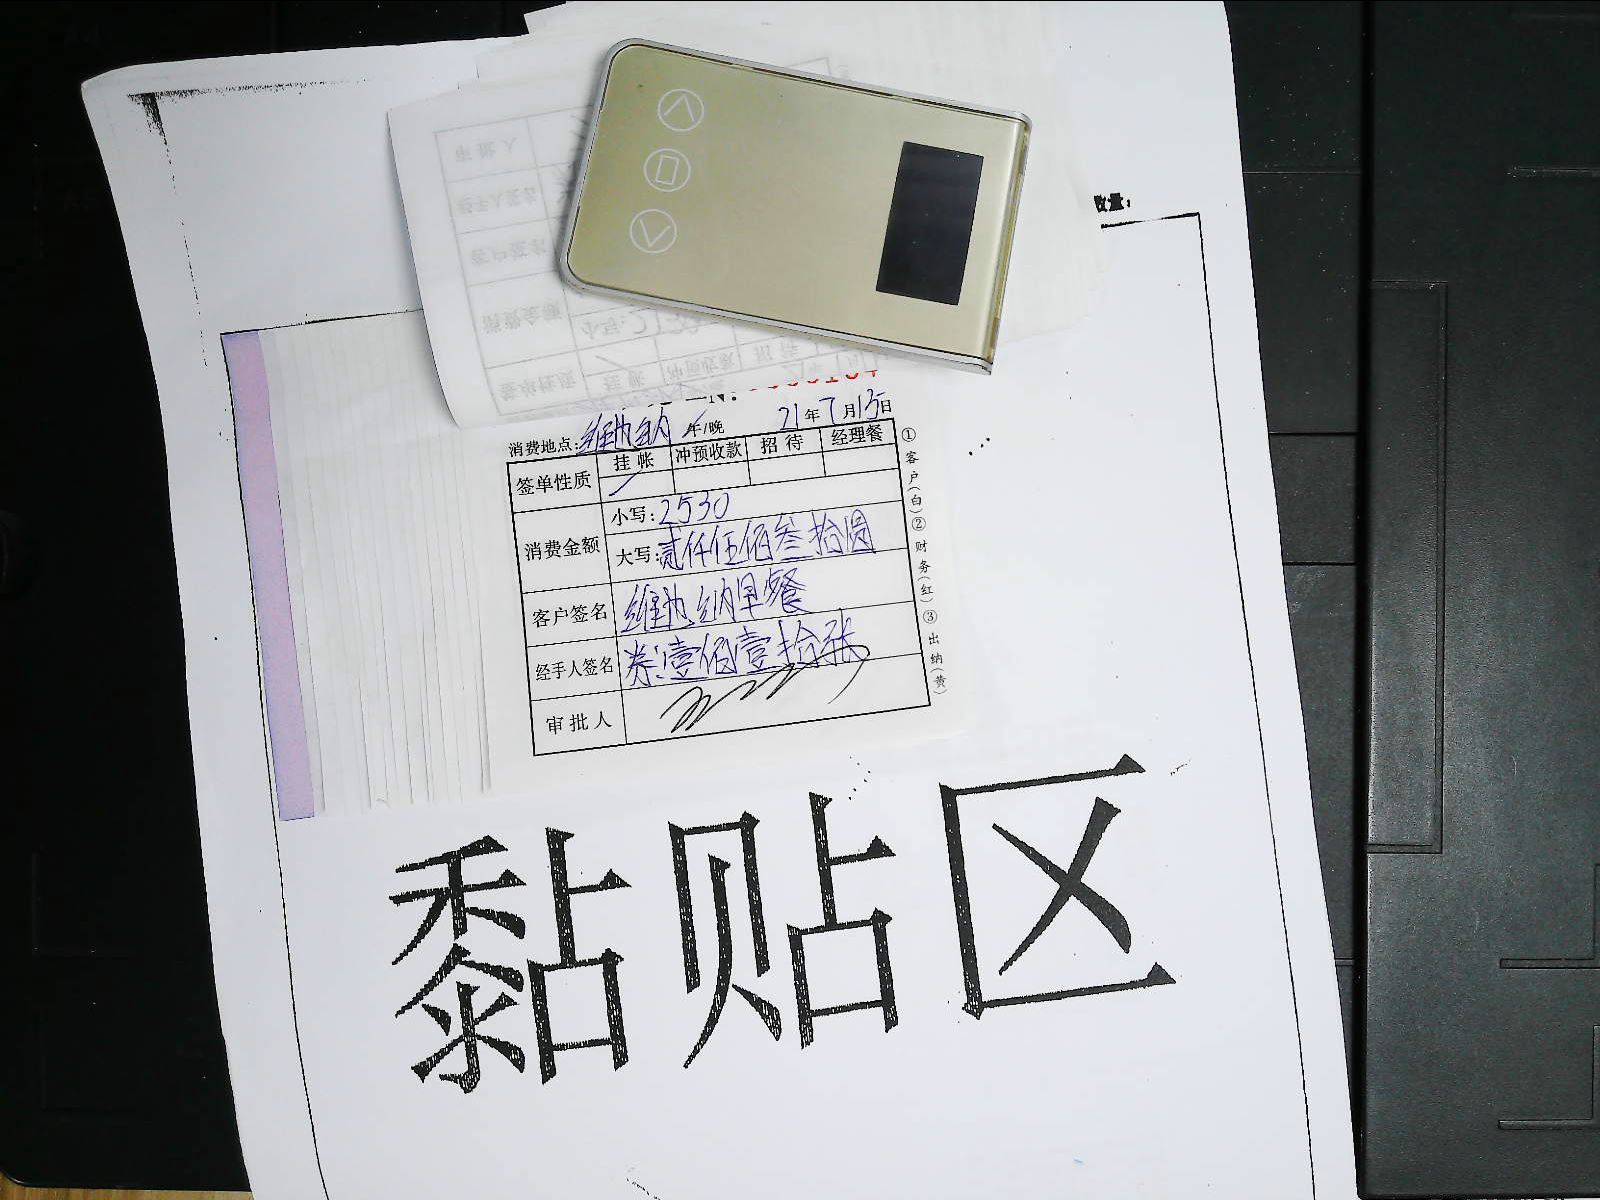 数量：
消费地点：维也纳 午/晚 21年7月13日
签单性质 挂帐 冲预收款 招待 经理餐
消费金额 小写：2530
大写：贰仟伍佰叁拾圆
客户签名 维也纳早餐
经手人签名 券：壹佰壹拾张
审批人
①客户（白）②财务（红）③出纳（黄）
黏贴区